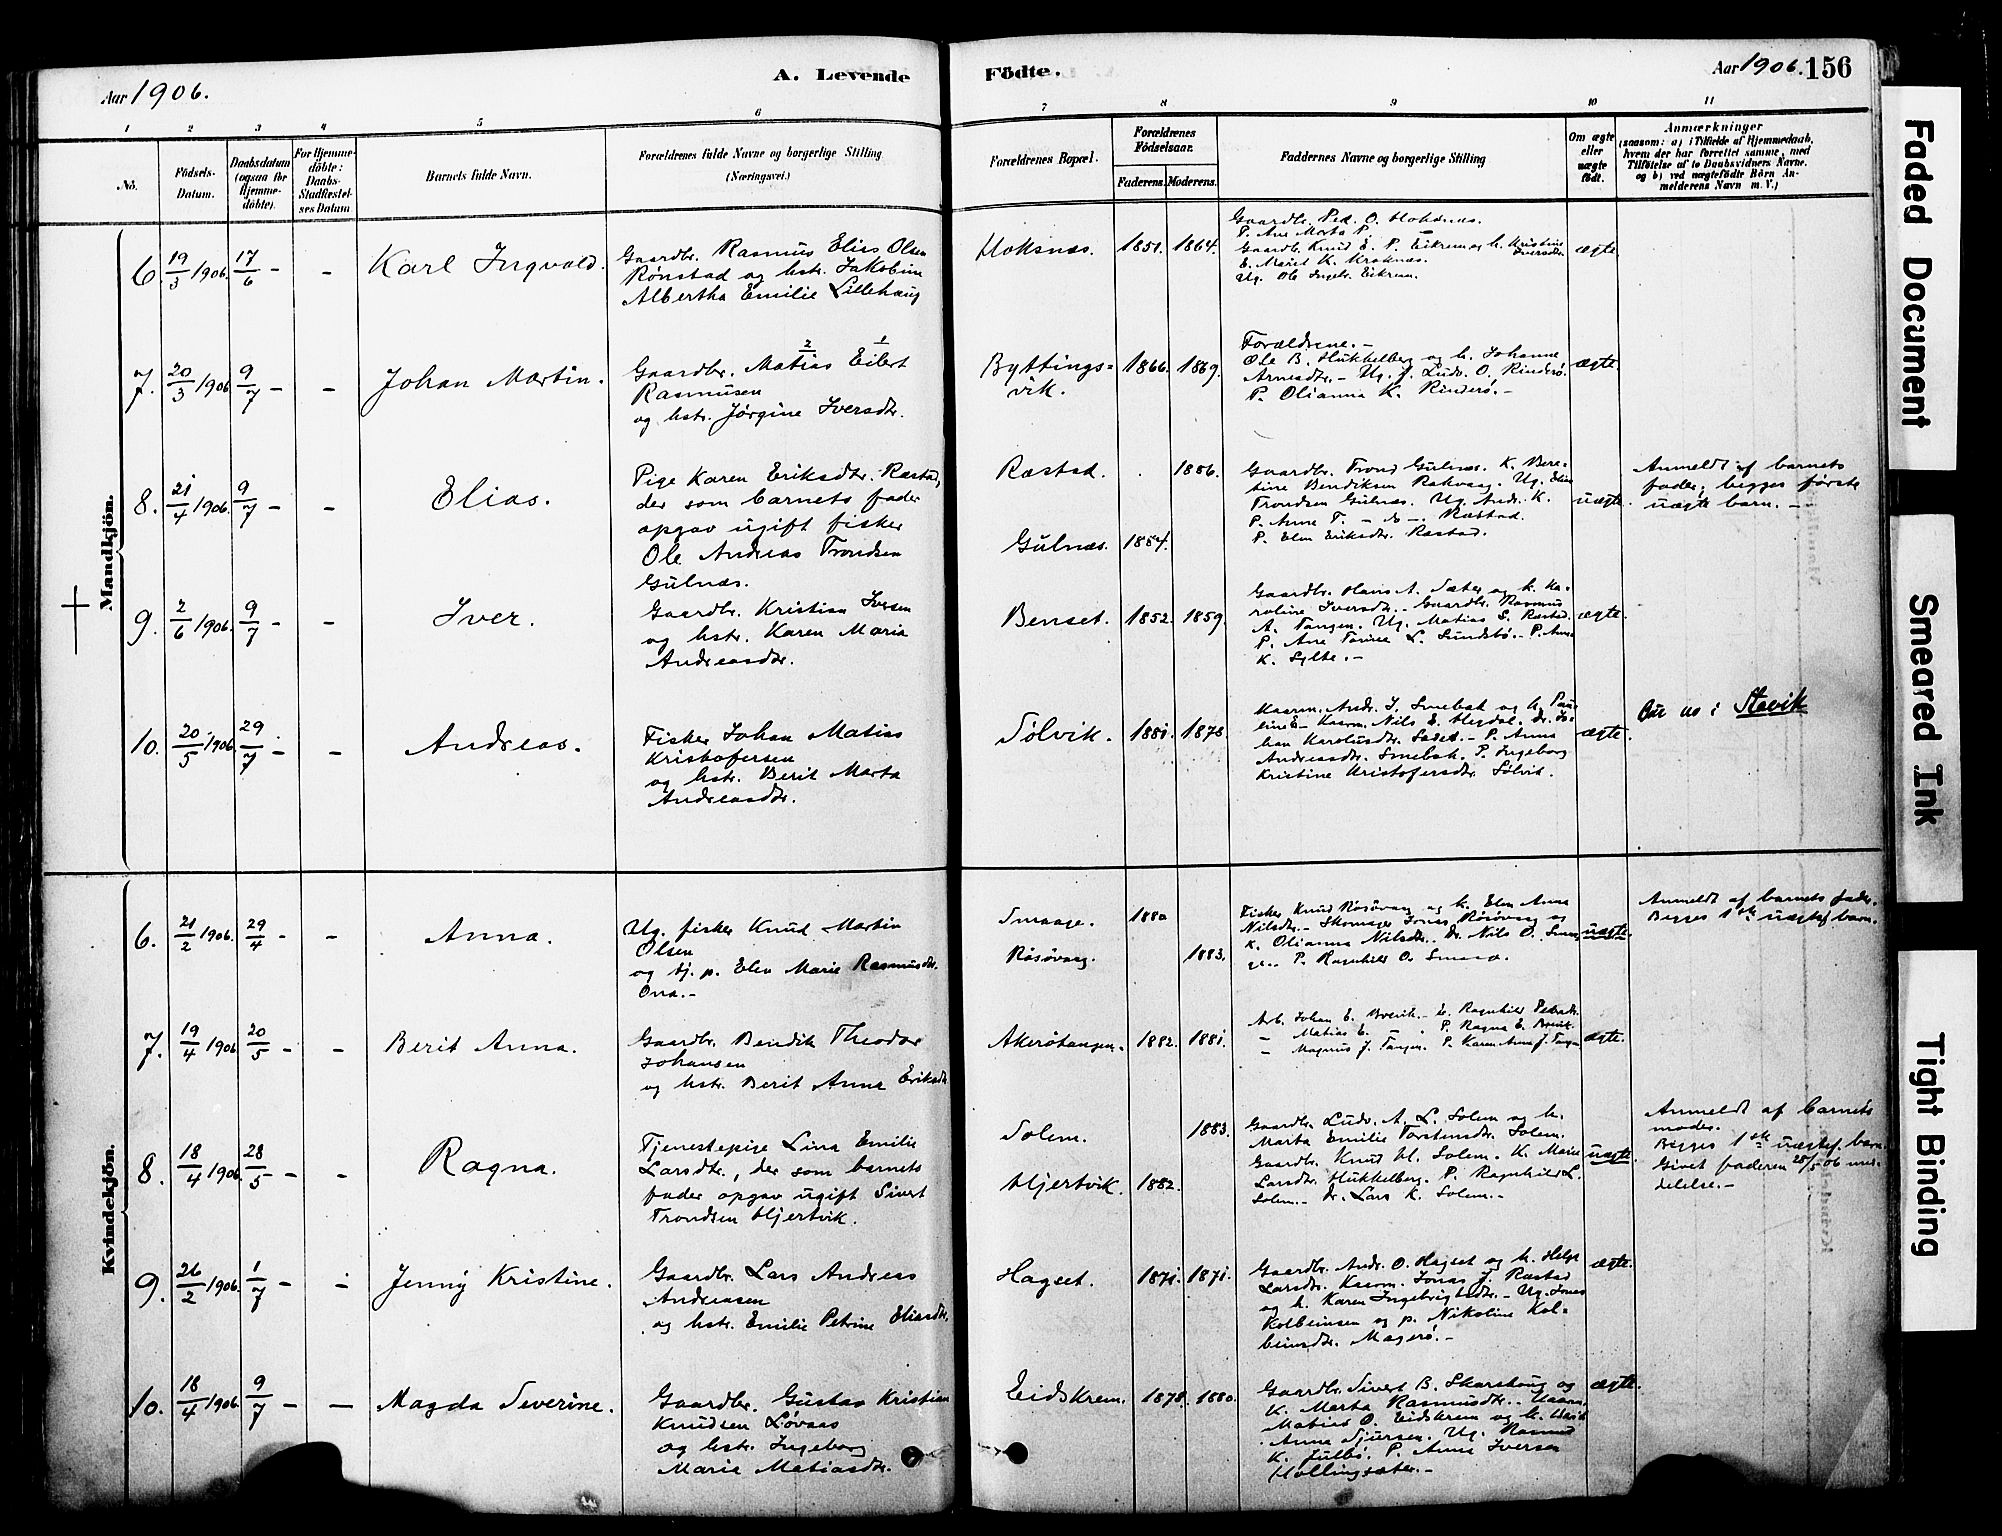 Aar 1906.
A. Levende
Födte.
Aar 1906. 156
1 2 3 4 5 6 7 8 9 10 11
No.
Födsels-Datum.
Daabsdatum (ogsaa for Hjemme-döbte).
For Hjemme-döbte: Daabs-Stadfæstel-ses Datum
Barnets fulde Navn.
Forældrenes fulde Navne og borgerlige Stilling (Næringsvei.)
Forældrenes Bopæl.
Forældrenes Födselsaar.
Faderens. Moderens.
Faddernes Navne og borgerlige Stilling
Om ægte eller uægte födt.
Anmærkninger
(saasom: a) i Tilfælde af Hjemmedaab,
hvem der har forrettet samme, med
Tilföielse af to Daabsvidners Navne.
og b) ved uægtefödte Börn An-
melderens Navn m. V.)
Mandkjön.
6. 19/3 1906. 17/6 - - Karl Ingvald.
Gaardbr. Rasmus Elias Olsen
Rønstad og hstr. Jakobine
Albertha Emilie Lillehaug
Hoksnæs. 1851. 1864.
Gaardbr. Ped. O. Hoksnæs.
P. Ane Marta P. -
Gaardb. Knud E. P. Eikrem og h. Kristine Iversdtr.
E. Marit K. Kroknæs.
Ug. Ole Ingebr. Eikrem.
ægte.
7. 20/3 1906 9/7 - - Johan Martin.
Gaardbr. Matias Eilert
Rasmusen
og hstr. Jørgine Iversdtr.
Byttings=
vik.
1866. 1869.
Forældrene. -
Ole B. Hukkelberg og h. Johanne
Arnesdtr. - Ug. J. Ludv. O. Rinderö.
P. Olianna K. Rinderö. -
ægte.
8. 21/4 1906. 9/7 - - Elias.
Pige Karen Eriksdtr. Ræstad,
der som barnets fader
opgav ugift fisker
Ole Andreas Trondsen
Gulnæs.
Ræstad. 1886.
Gulnæs. 1884.
Gaardbr. Trond Gulnæs. K. Bere-
tine Bendiksen Rakvaag. Ug. Elias
Trondsen Gulnæs. Ug. Andr. K.
P. Anne T. - do -. Ræstad.
P. Elen Eriksdtr. Ræstad.
uægte.
Anmeldt af barnets
fader; begges første
uægte barn. -
9. 2/6 1906. 9/7 - - Iver.
Gaardbr. Kristian Iversen
og hstr. Karen Maria
Andreasdtr.
Benset. 1852. 1859.
Gaardbr. Hans A. Sæter og h. Ka-
roline Iversdtr. - Gaardbr. Rasmus
A. Tangen. Ug. Matias S. Ræstad.
P. Ane Tomine L. Sundsbö. - P. Ane
K. Sylte. -
ægte.
10. 20/5 1906. 29/7 - - Andreas.
Fisker Johan Matias
Kristofersen
og hstr. Berit Marta
Andreasdtr.
Sølvik. 1881. 1878.
Kaarm. Andr. J. Smebak og h. Pau-
line E - Kaarm. Nils E. Hegdal. Dr. Jo-
han Karolusdtr. - P. Anna
Andreasdtr. Smebak. P. Ingeborg
Kristine Kristofersdtr. Sølvik.
ægte.
Bu no i Stavik
Kvindekjön.
6. 21/2 1906. 29/4 - - Anna.
Ug. fisker Knud Martin
Olsen
og tj. p. Elen Marie Rasmusdtr.
Ona. -
Smaage. 1880
Røsøvaag. 1883.
Fisker Knud Røsøvaag og h. Elen Anna
Nilsdtr. - Skomager Jonas Røsøvaag og
K. Olianna Nilsdtr. Dr. Nils O. Smaa-
ge. - P. Ragnhild O. Smaage.
uægte.
Anmeldt af barnets fader.
Begges 1ste uægtef. barn.
7. 19/4 1906 20/5 - - Berit Anna.
Gaardbr. Bendik Theodor
Johansen
og hstr. Berit Anna Eriksdtr.
Akerötangen. 1882. 1881.
Arb. Johan E. Brevik. - h. Ragnhild Pedersdtr.
- Matias E. - P. Ragna E. Brevik.
- Magnus J. Tangen. P. Karen Anna J. Tangen
ægte.
8. 18/4 1906 28/5 - - Ragna.
Tjenestepige Lina Emilie
Larsdtr., der som barnets
fader opgav ugift Sivert
Trondsen Hjertvik.
Solem. 1883.
Hjertvik. 1882.
Gaardbr. Ludv. A. L. Solem og h.
Marta Emilie Torstensdtr. Solem.
Gaardbr. Knud H. Solem. K. Marie
Larsdtr. Hukkelberg. P. Ragnhild L.
Solem. - Dr. Lars K. Solem. -
uægte.
Anmeldt af barnets
moder.
Begges 1ste uægtef. barn.
Givet faderen 28/5 06 med-
delelse. -
9. 26/2 1906. 1/7 - - Jenny Kristine.
Gaardbr. Lars Andreas
Andreasen
og hstr. Emilie Petrine Eliasdtr.
Hagset. 1871. 1871.
Gaardbr. Andr. O. Hagset og h. Helga
Larsdtr. Kaarm. Jonas J. Ræstad
og h. Karen Ingebrigtsdtr. - Ug. Jonas
Kolbeinsen og p. Nikoline Kol-
beinsdtr. Magerö. -
ægte.
10. 18/4 1906. 9/7 - - Magda Severine.
Gaardbr. Gustav Kristian
Knudsen Løvaas
og hstr. Ingeborg
Marie Matiasdtr.
Eidskrem. 1878. 1880.
Gaardbr. Sivert B. Skarshaug og
K. Marta Rasmusdtr. Kaarm.
Matias O. Eidskrem og h. Marit
Anna Sjursen. Ug. Rasmus
K. Julbö. P. Anne Iversen
Hollingsæter. -
ægte.
Faded Document
Smeared Ink
Tight Binding